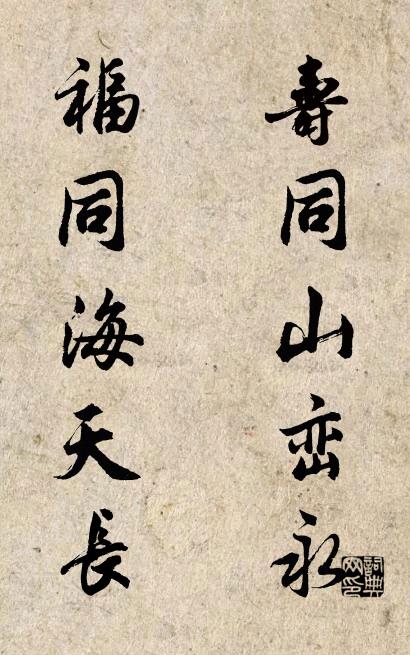 壽同山峦永
福同海天長
詞典网印